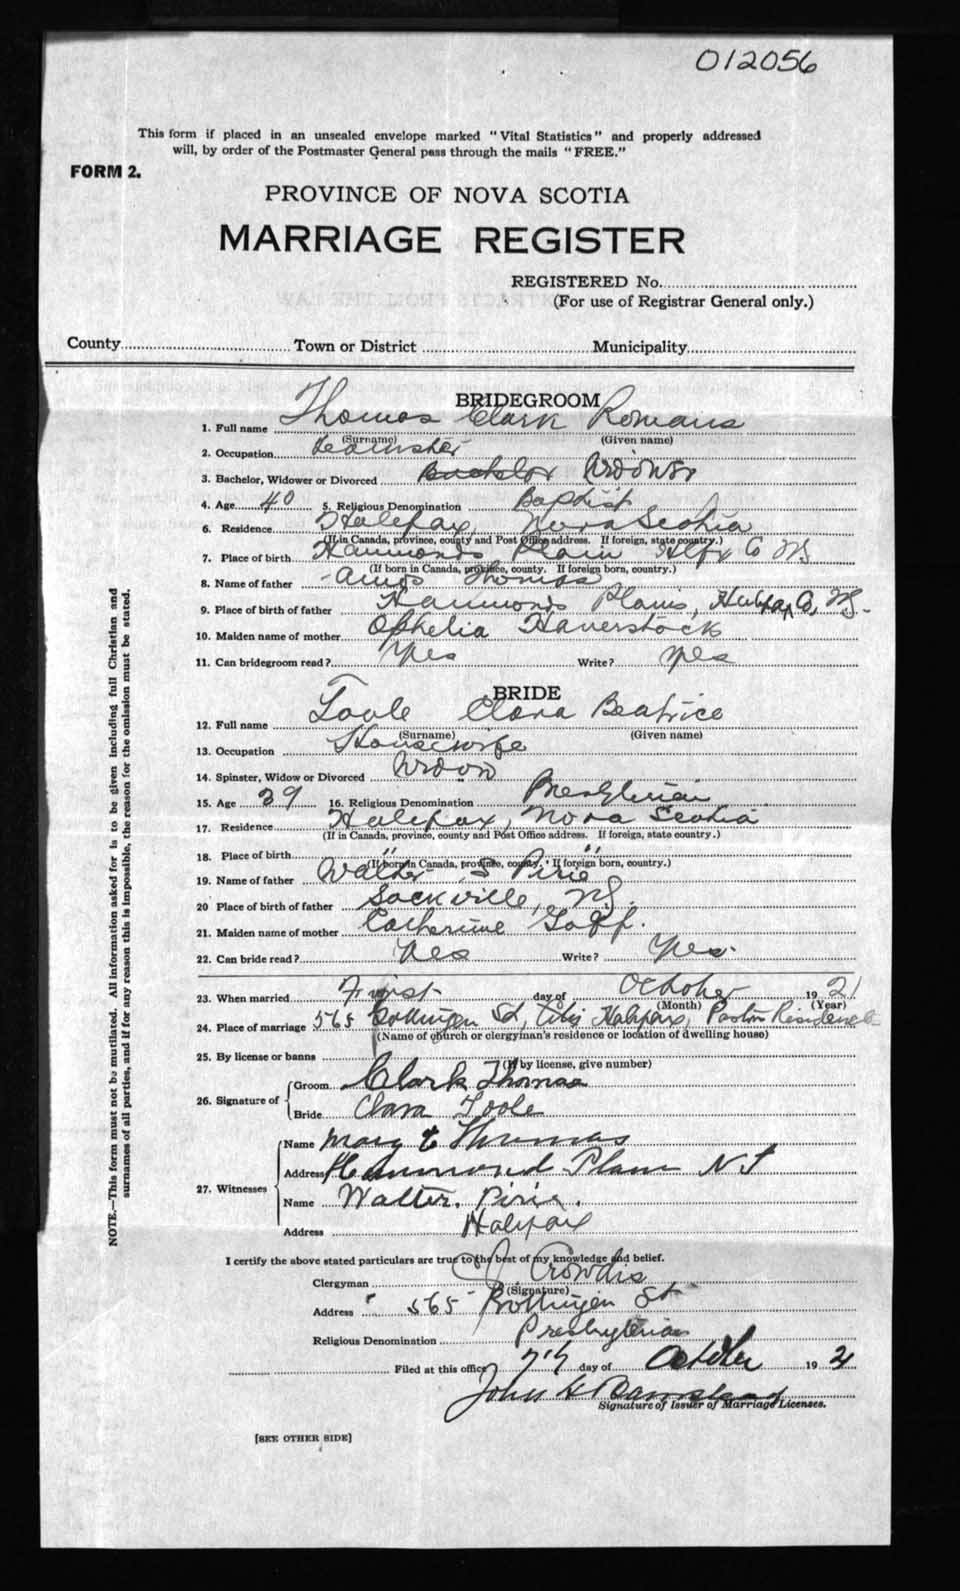 012056
This form if placed in an unsealed envelope marked "Vital Statistics" and properly addressed
will, by order of the Postmaster General pass through the mails "FREE."
FORM 2.
PROVINCE OF NOVA SCOTIA
MARRIAGE REGISTER
REGISTERED No.
(For use of Registrar General only.)
County Town or District Municipality
BRIDEGROOM
1. Full name Thomas Clark Romans
(Surname) (Given name)
2. Occupation Teamster
3. Bachelor, Widower or Divorced Bachelor Widower
4. Age 40 5. Religious Denomination Baptist
6. Residence Halifax, Nova Scotia
(If in Canada, province, county and Post Office address. If foreign, state country.)
7. Place of birth Hammonds Plain Hlfx Co NS
(If born in Canada, province, county. If foreign born, country.)
8. Name of father Amos Thomas
9. Place of birth of father Hammonds Plains, Halifax Co, NS.
10. Maiden name of mother Ophelia Haverstock
11. Can bridegroom read? Yes Write? Yes
BRIDE
12. Full name Toole Clara Beatrice
(Surname) (Given name)
13. Occupation Housewife
14. Spinster, Widow or Divorced Widow
15. Age 39 16. Religious Denomination Presbyterian
17. Residence Halifax, Nova Scotia
(If in Canada, province, county and Post Office address. If foreign, state country.)
18. Place of birth " "
(If born in Canada, province, county. If foreign born, country.)
19. Name of father Walter S Pirie
20 Place of birth of father Sackville, NS.
21. Maiden name of mother Catherine
22. Can bride read? Yes Write? Yes.
23. When married First day of October 1921
(Month) (Year)
24. Place of marriage 565 Bottingen St, City Halifax, Pastor Residence
(Name of church or clergyman's residence or location of dwelling house)
25. By license or banns
(If by license, give number)
26. Signature of Groom Clark Thomas
Bride Clara Toole
27. Witnesses Name Mary E Thomas
Address Hammond Plain N S
Name Walter. Pirie.
Address Halifax
I certify the above stated particulars are true to the best of my knowledge and belief.
Clergyman J. Crowdis
(Signature)
Address 565 Bottingen St
Religious Denomination Presbyterian
Filed at this office 7th day of October 1921
John H Barnstead
Signature of Issuer of Marriage Licenses.
[SEE OTHER SIDE]
NOTE.—This form must not be mutilated. All information asked for is to be given including full Christian and
surnames of all parties, and if for any reason this is impossible, the reason for the omission must be stated.